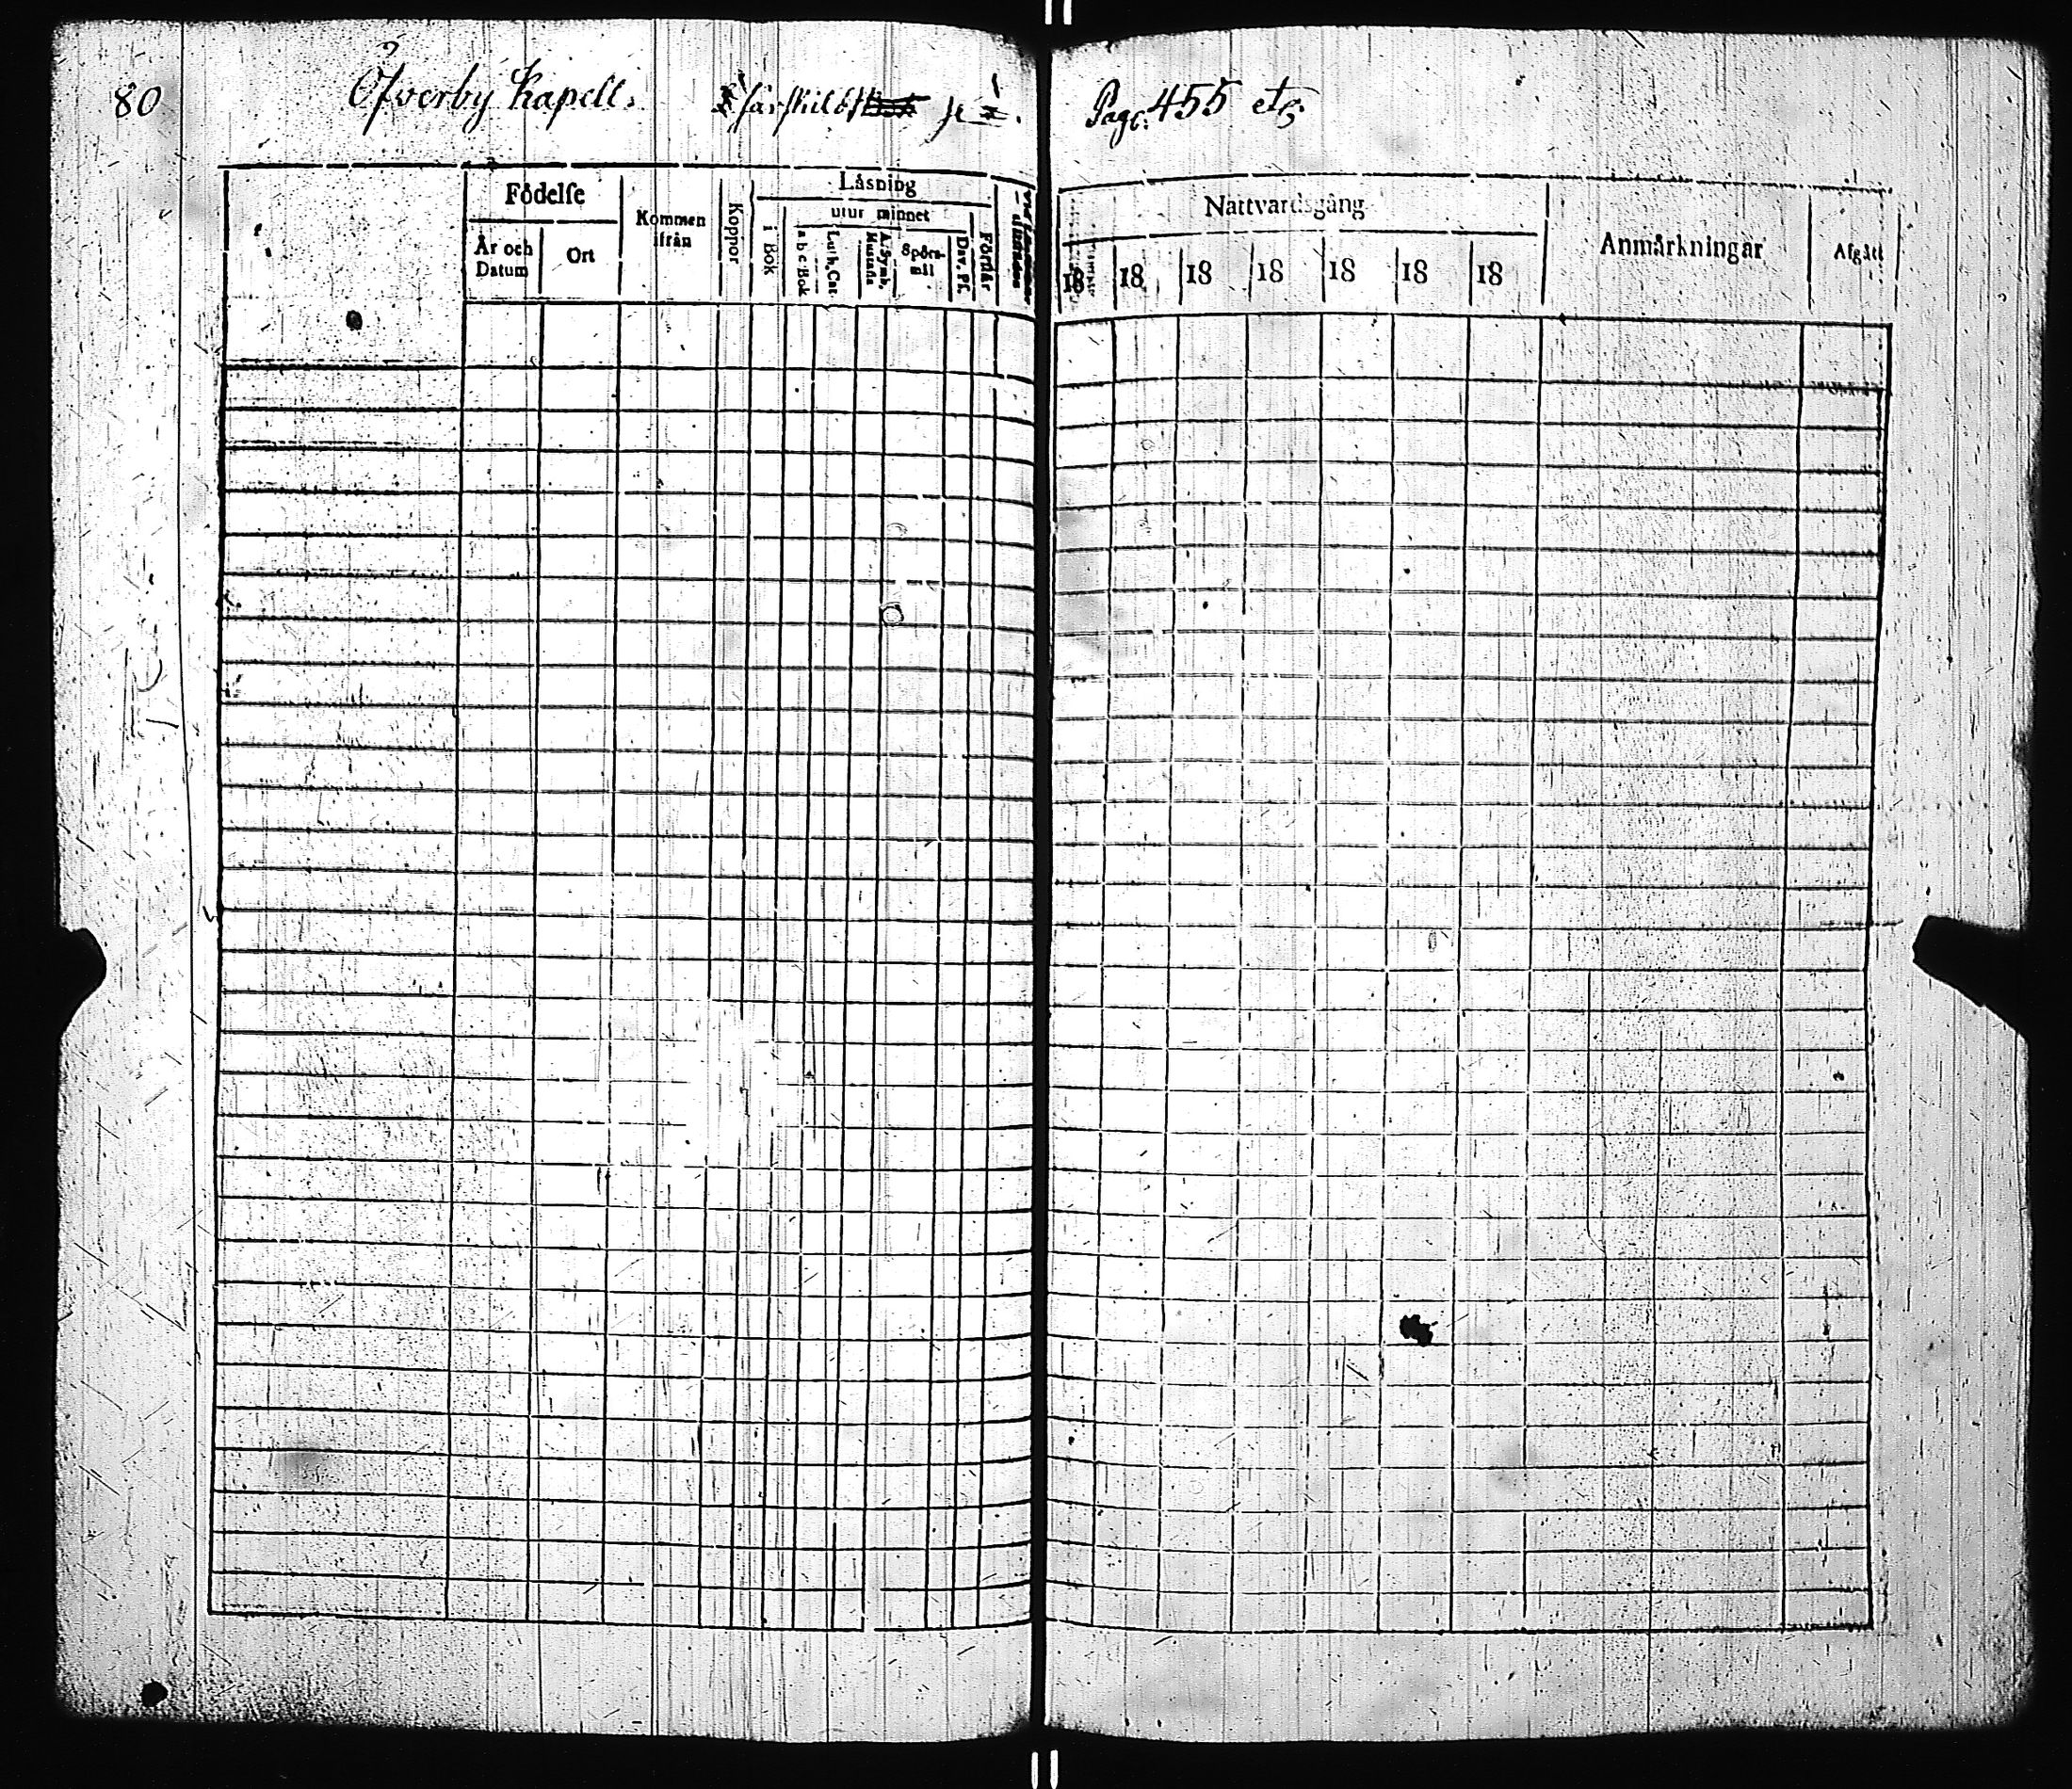 80 Öfverby Kapell. särskildt Page. 455 etc
Födelse Läsning Nattvardsgång
Kommen ifrån Koppor utur minnet Förstår Anmärkningar Afgått
År och Datum Ort i Bok a b c Bok Luth. Cat A. Symb. Spörsmål Dav. Ps.
18 18 18 18 18 18 18